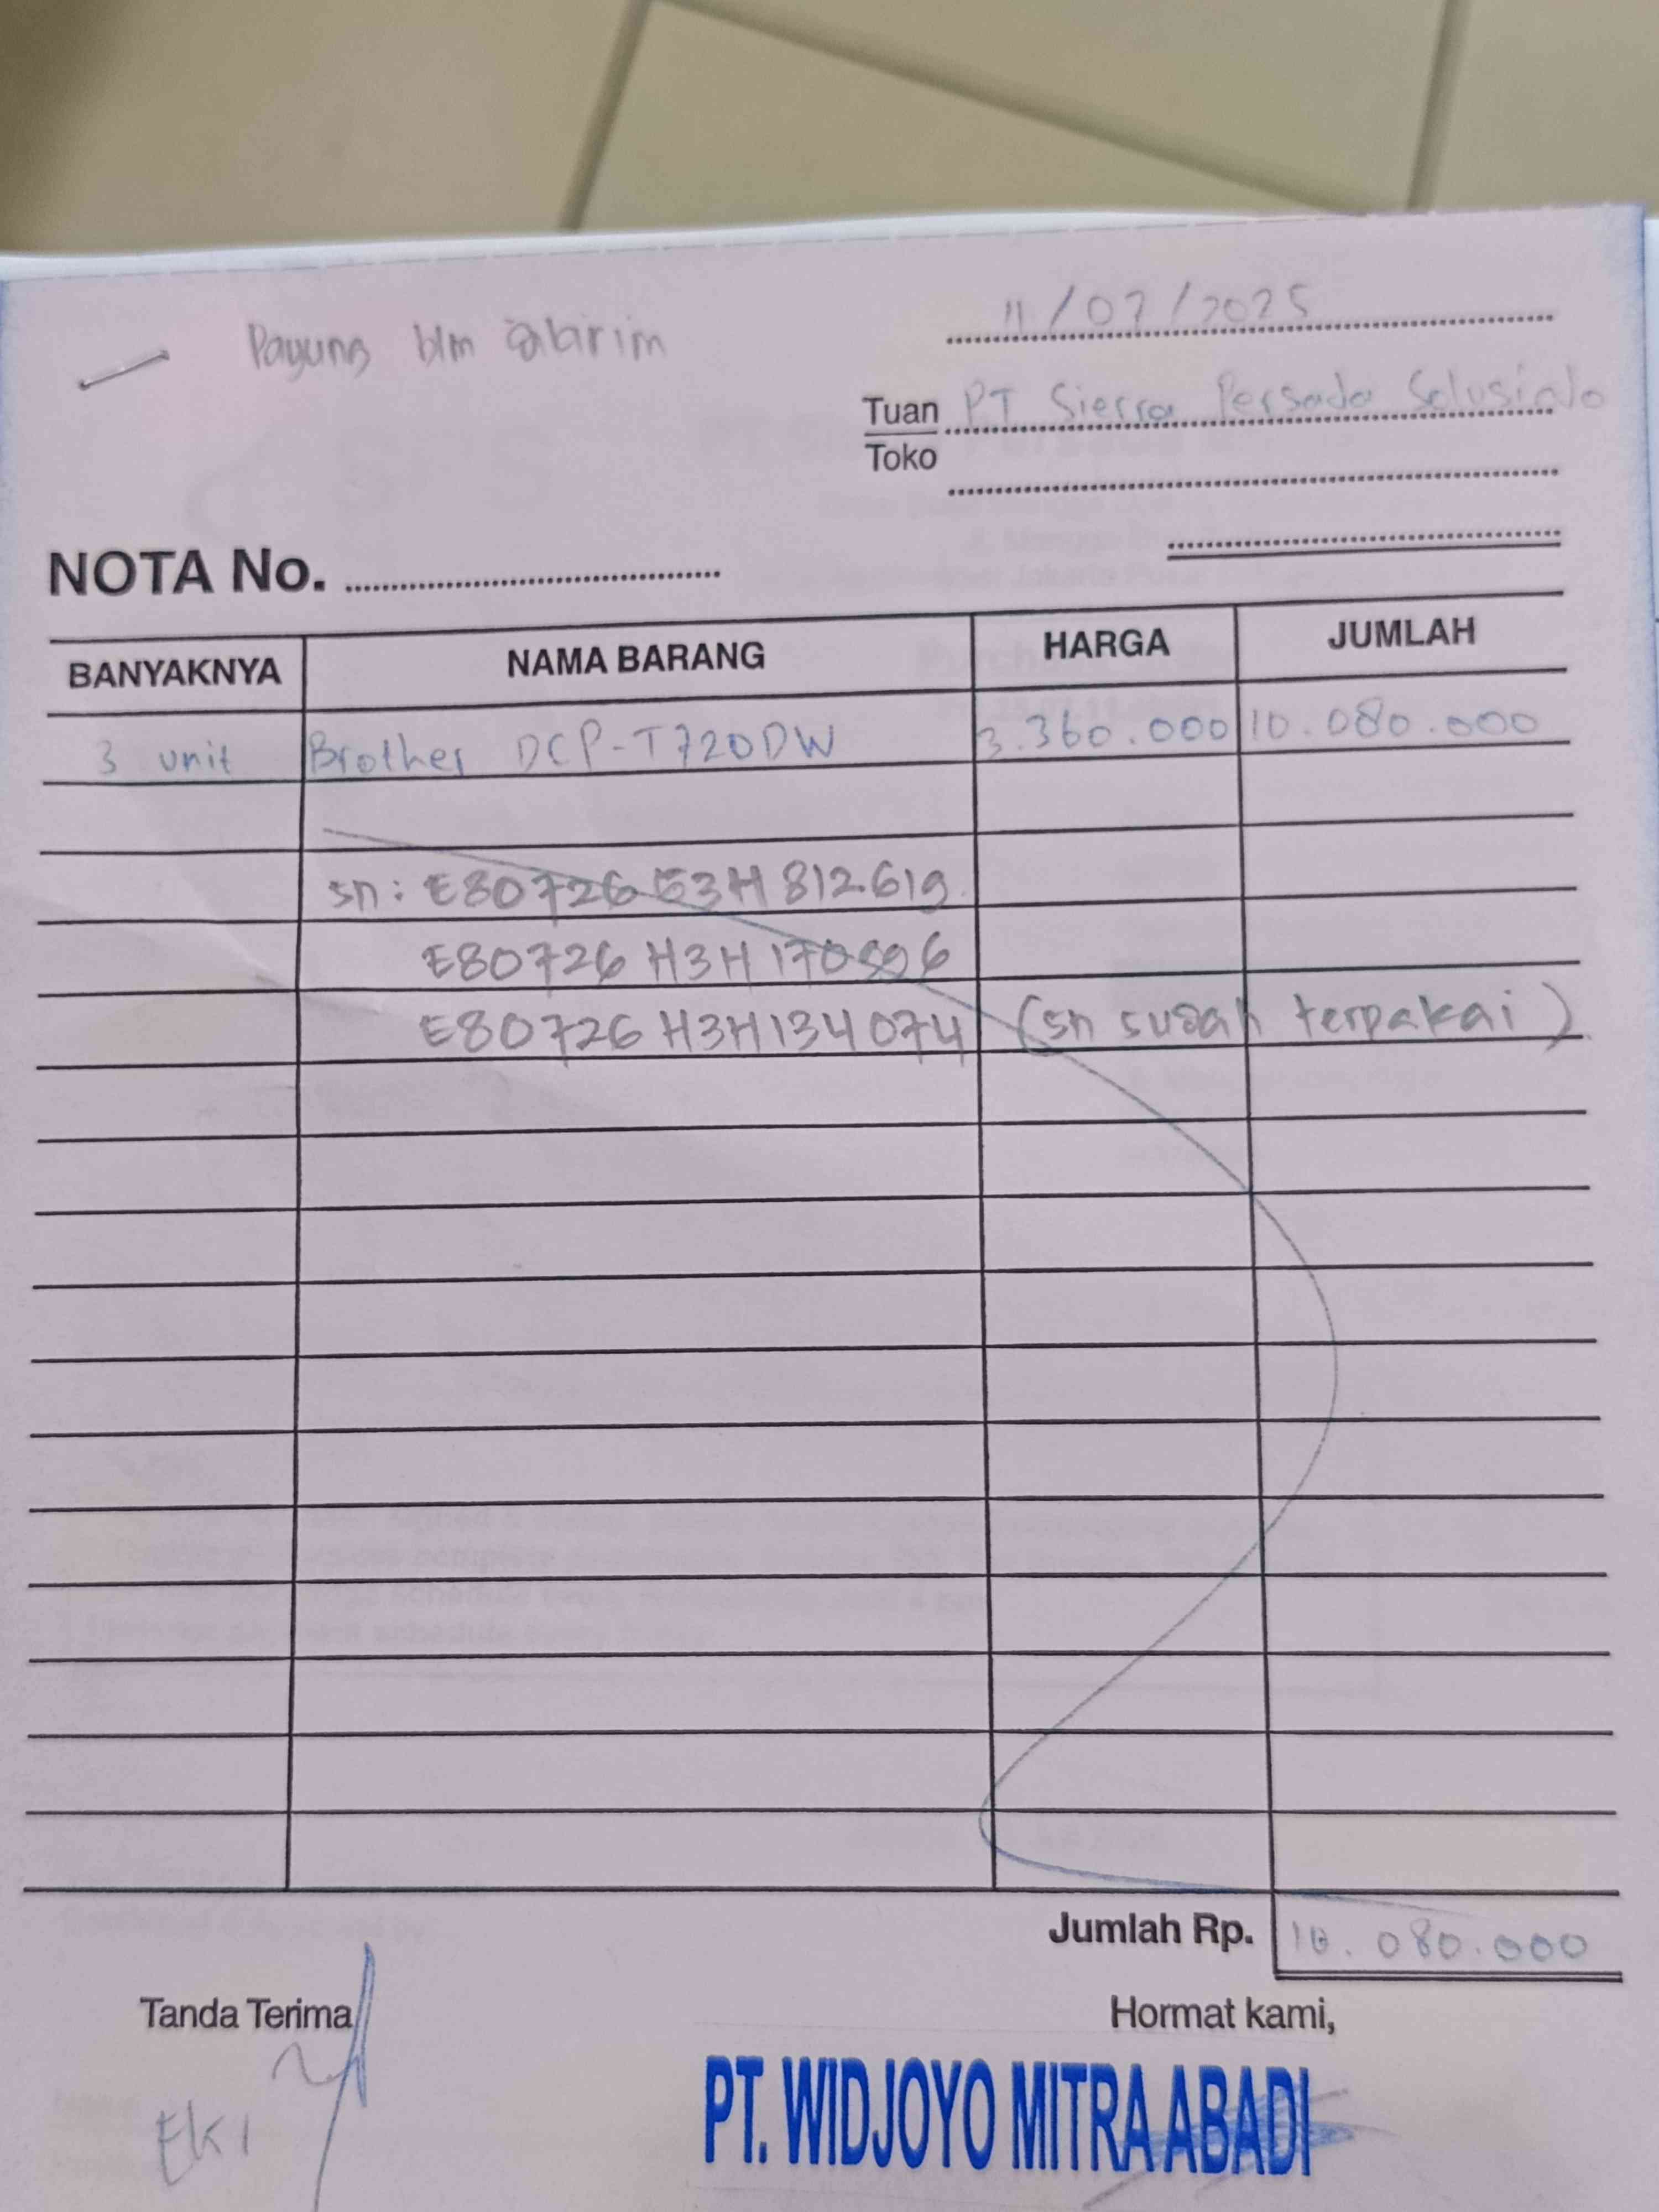 Payung blm dikirim
11/07/2025
Tuan PT Sierra Persada Solusindo
Toko
NOTA No.
BANYAKNYA NAMA BARANG HARGA JUMLAH
3 unit Brother DCP-T720DW 3.360.000 10.080.000
sn: E80726E3H812619
E80726H3H170596
E80726H3H134074 (sn sudah terpakai)
Jumlah Rp. 10.080.000
Tanda Terima Hormat kami,
PT. WIDJOYO MITRA ABADI
EKI